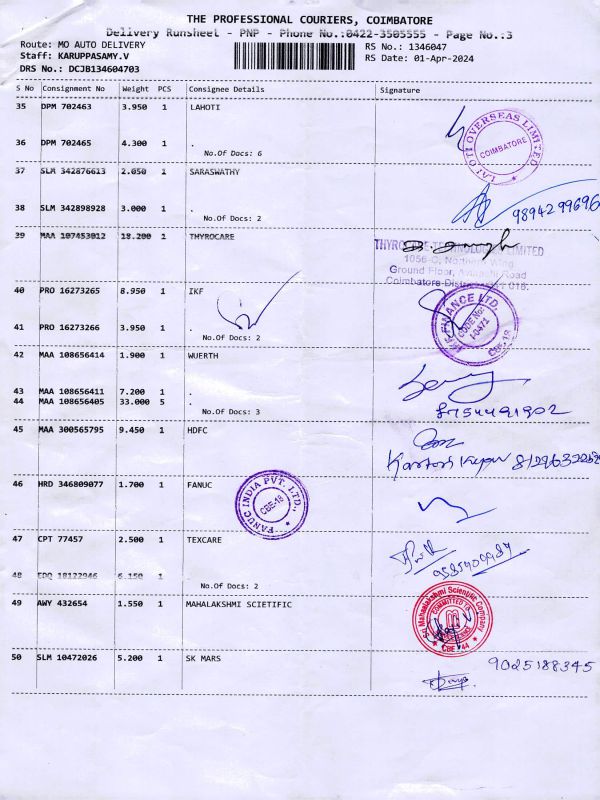 THE PROFESSIONAL COURIERS, COIMBATORE
Delivery Runsheet - PNP - Phone No.:0422-3505555 - Page No.:3
Route: MO AUTO DELIVERY
RS No.: 1346047
Staff: KARUPPASAMY.V
RS Date: 01-Apr-2024
DRS No.: DCJB134604703
S No Consignment No Weight PCS Consignee Details Signature
35 DPM 702463 3.950 1 LAHOTI
36 DPM 702465 4.300 1 .
No.Of Docs: 6
OVERSEAS LIMITED
COIMBATORE
37 SLM 342876613 2.050 1 SARASWATHY
38 SLM 342898928 3.000 1 .
No.Of Docs: 2
9894299696
39 MAA 107453012 18.200 1 THYROCARE
THYROCARE TECHNOLOGIES LIMITED
1056-C, Wing
Ground Floor, Avinashi Road
Coimbatore 018.
40 PRO 16273265 8.950 1 IKF
41 PRO 16273266 3.950 1 .
No.Of Docs: 2
IKF FINANCE LTD.
CODE No:
CBE-18
42 MAA 108656414 1.900 1 WUERTH
43 MAA 108656411 7.200 1 .
44 MAA 108656405 33.000 5 .
No.Of Docs: 3
8754491902
45 MAA 300565795 9.450 1 HDFC
46 HRD 346809077 1.700 1 FANUC
FANUC INDIA PVT. LTD.,
CBE-18
47 CPT 77457 2.500 1 TEXCARE
48 EDQ 18122946 6.150 1 .
No.Of Docs: 2
49 AWY 432654 1.550 1 MAHALAKSHMI SCIETIFIC
Sri Mahalakshmi Scientific Company
COMMITTED TO
CBE - 44
50 SLM 10472026 5.200 1 SK MARS
9025188345